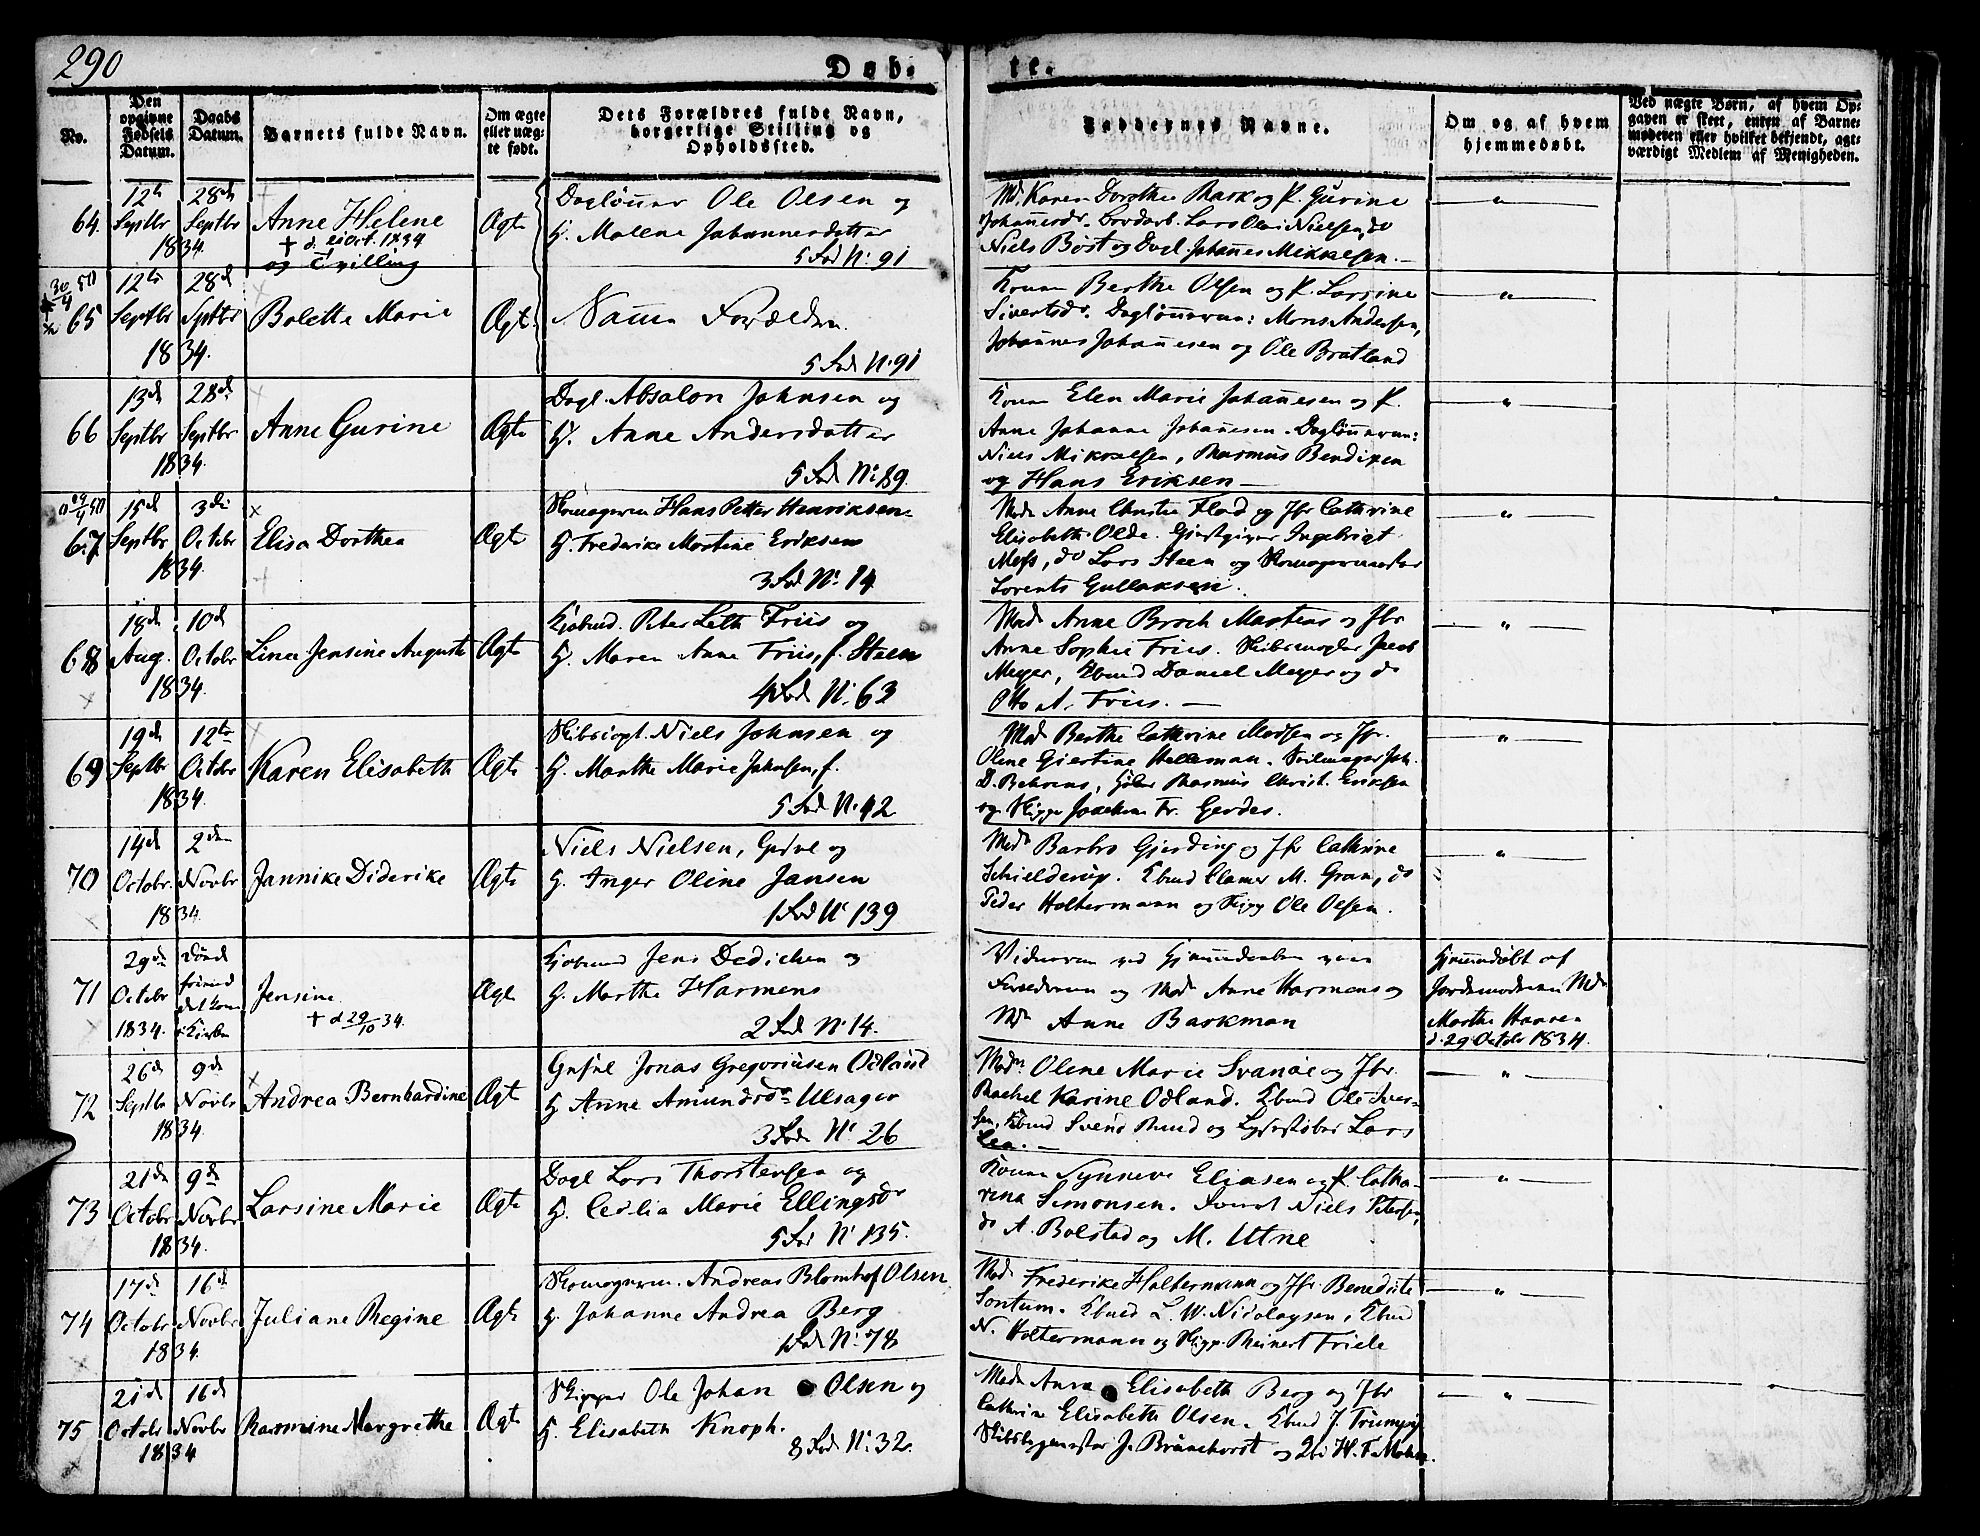 290
Døb-
te.
No.
Den
opgivne
Fødsels
Datum.
Daabs
Datum.
Barnets fulde Navn.
Om ægte
eller uæg-
te født.
Dets Forældres fulde Navn,
borgerlige Stilling og
Opholdssted.
Faddernes Navne.
Om og af hvem
hjemmedøbt.
Ved uægte Børn, af hvem Op-
gaven er skeet, enten af Barne-
moderen eller hvilket bekjendt, agt-
værdigt Medlem af Menigheden.
64.
12te Septbr 1834
28de Septbr
Anne Helene
og Tvilling
Ægte
Daglønner Ole Olsen og
H. Malene Johannesdatter
5 Fod No. 91
Md. Karen Dorothea Rask og P. Gurine
Johannesdr. Lars Olai Nielsen, do
Niels Bost og Dagl. Johannes Mikkelsen.
65
12te Septbr 1834.
28de Sptbr
Bolette Marie
Ægte
Samme Forældre.
5 Fod No. 91
Konen Berthe Olsen og P. Larsine
Sivertsdr. Daglønnerne: Mons Andersen,
Johannes Johannesen og Ole Bratland
66
13de Septbr 1834.
28de Septbr
Anne Gurine
Ægte
Dagl. Absalon Johnsen og
H. Anne Andersdatter
5 Fod No. 89.
Konen Elen Marie Johannesen og P.
Anne Johanne Johanesen. Dagløunerne:
Niels Mikkelsen, Rasmus Bendixen
og Hans Eriksen
67
15de Septbr 1834.
3die Octobr
Elisa Dorthea
Ægte
Skomagerm Hans Petter Henriksen
H. Frederike Martine Eriksen
3 Fod No. 14
Mad. Anne Christie Flood og Jfr Cathrine
Elisabeth Olde. Gjestgiver Ingebrigt
do Lars Steen og Skomagermester
Lorents Gullaksen.
68
18de Aug. 1834.
10de Octobr
Lina Jensine Auguste
Ægte
Kjøbmd. Peter Leth Friis og
H. Maren Anne Friis, f. Steen
4 Fod No. 63
Mad Anne Broch Martens og Jfr
Anne Sophie Friis. Skibsmægler Jacob
Meyer, Kbmd Daniel Meyer og do
Otto A. Friis.
69
19de Septbr 1834.
12te Octobr
Karen Elisabeth
Ægte
Niels Johnsen og
H. Marthe Marie Johnsen, f.
5 Fod No. 42
Mad Berthe Cathrine Madsen og Jfr.
Olene Giertine Helleman. Seilmager Joh.
D. Behrens, Rasmus Christ. Eriksen
og Skipper Joachim Fr. Gerdes.
70
14de Octobr. 1834.
2den Novbr
Jannike Diderike
Ægte
Niels Nielsen, og
H. Inger Oline Jansen
1 Fod No 139
Mad Barbro Gjerding og Jfr Cathrine
Schielderup. Kbmd Clamer M. Gran, do
Peder Holtermann og Skipp Ole Olsen.
71
29de Octobr 1834.
Døde
førend
det kom
i Kirken
Jensine
† d 29/10 34.
Ægte
Kjøbmand Jens Dedichen og
H. Marthe Harmens
2 Fod No 14.
Vidnerne ved Hjemmedaaben vare
Faderen og Mad Anne Harmens og
Md Anne Barkman
Hjemmedøbt af
Jordemoderen Md
Marthe Hansen
d. 29 Octobr 1834.
72
26de Septbr 1834.
9de Novbr
Andrea Bernhardine
Ægte
Jonas Gregoriusen Odland
H Anne Amundsdr Ulsager
3 Fod No 26
Madm Olene Marie Svanøe og Jfr.
Rachel Karine Odland. Kbmd Ole Iver-
sen, Kbmd Svend Ruud og Lysestøber Lars
Lea.
73
21de Octobr 1834.
9de Novbr
Larsine Marie
Ægte
Dagl Lars Thorstensen og
H. Cecilia Marie Ellingsdr
5 Fod No 135.
Konen Synneve Eliasen og P. Catha-
rina Simonsen. Niels Petersen,
do A. Bolstad og M. Utne
74
17de Octobr 1834.
16de Novbr
Juliane Regine
Ægte
Skomagerm. Andreas Blomhof Olsen
H. Johanne Andrea Berg
1 Fod No. 78
Mad Frederike Holtermann og Jfr Benedicte
Sontum. Kbmd L. W. Nicolaysen, Kbmd
N. Holtermann og Skipp. Reinert Friele
75
21de Octobr 1834
16de Novbr
Rasmine Margrethe
Ægte
Skipper Ole Johan Olsen og
H. Elisabeth Knoph.
8 Fod No. 32.
Mad Anna Elisabeth Berg og Jfr
Cathrine Elisabeth Olsen. Kbmd J. Trumpy,
Skibsbygmester J. Brunchorst og H. F. Mohr.